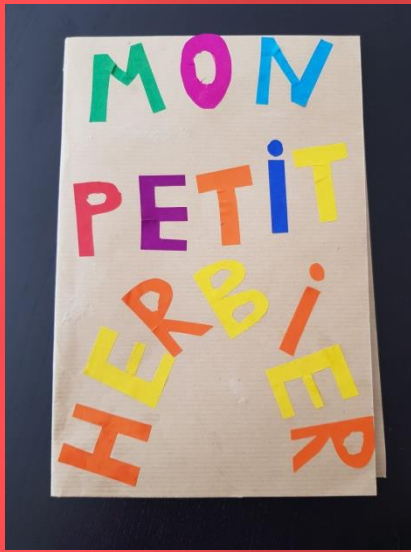 MON
PETiT
HERBiER